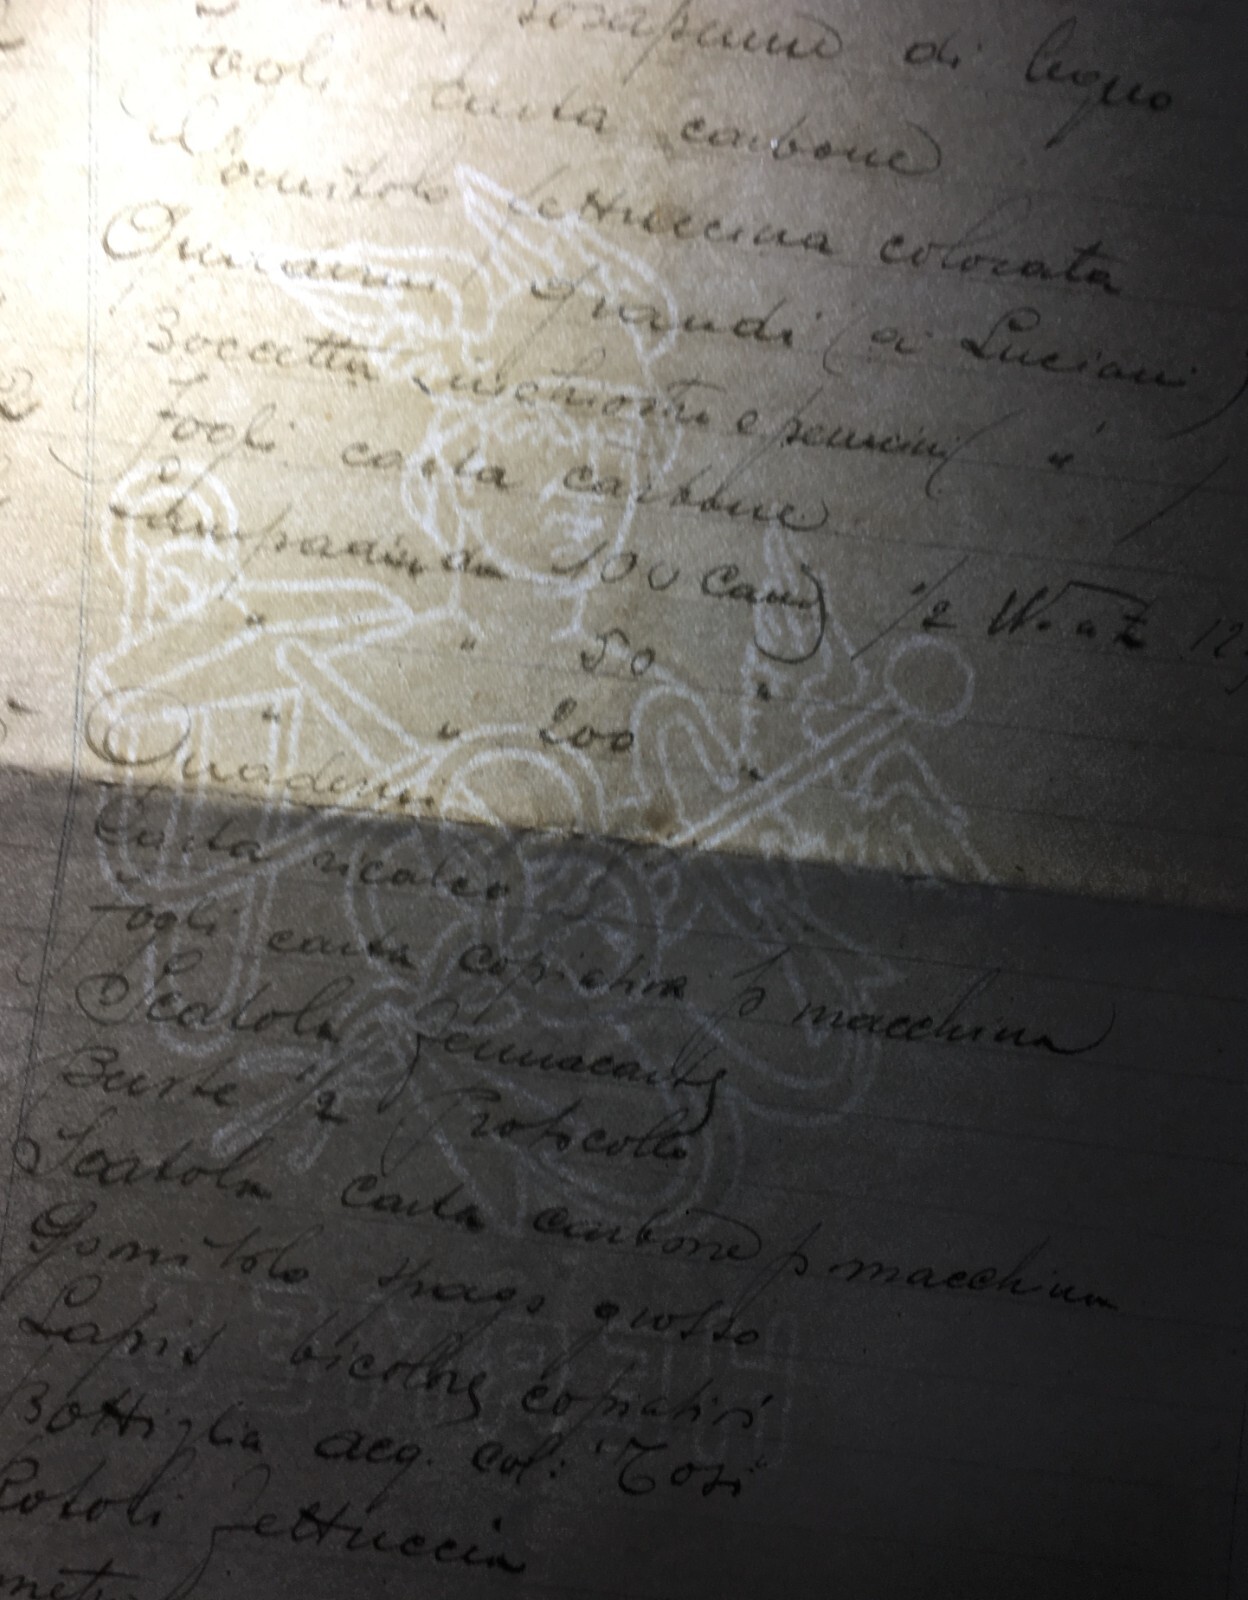 di legno
Fogli carta carbone
Gomitolo fettuccina colorata
Quaderni grandi (a Luciani)
Boccetta inchiostri e pennini ( " )
2 Fogli carta carbone
Lampadina da 100 Cand 1/2 Watt 12
" " 50 "
" " 200 "
Quaderni
Carta ricalco
Fogli carta copiativa p macchina
Scatola fermacarte
Buste 1/2 Protocollo
Scatola carta carbone p macchina
Gomitolo spago grosso
Lapis bicolore copiativi
Bottiglia acq. col: "Tosi"
Rotoli fettuccia